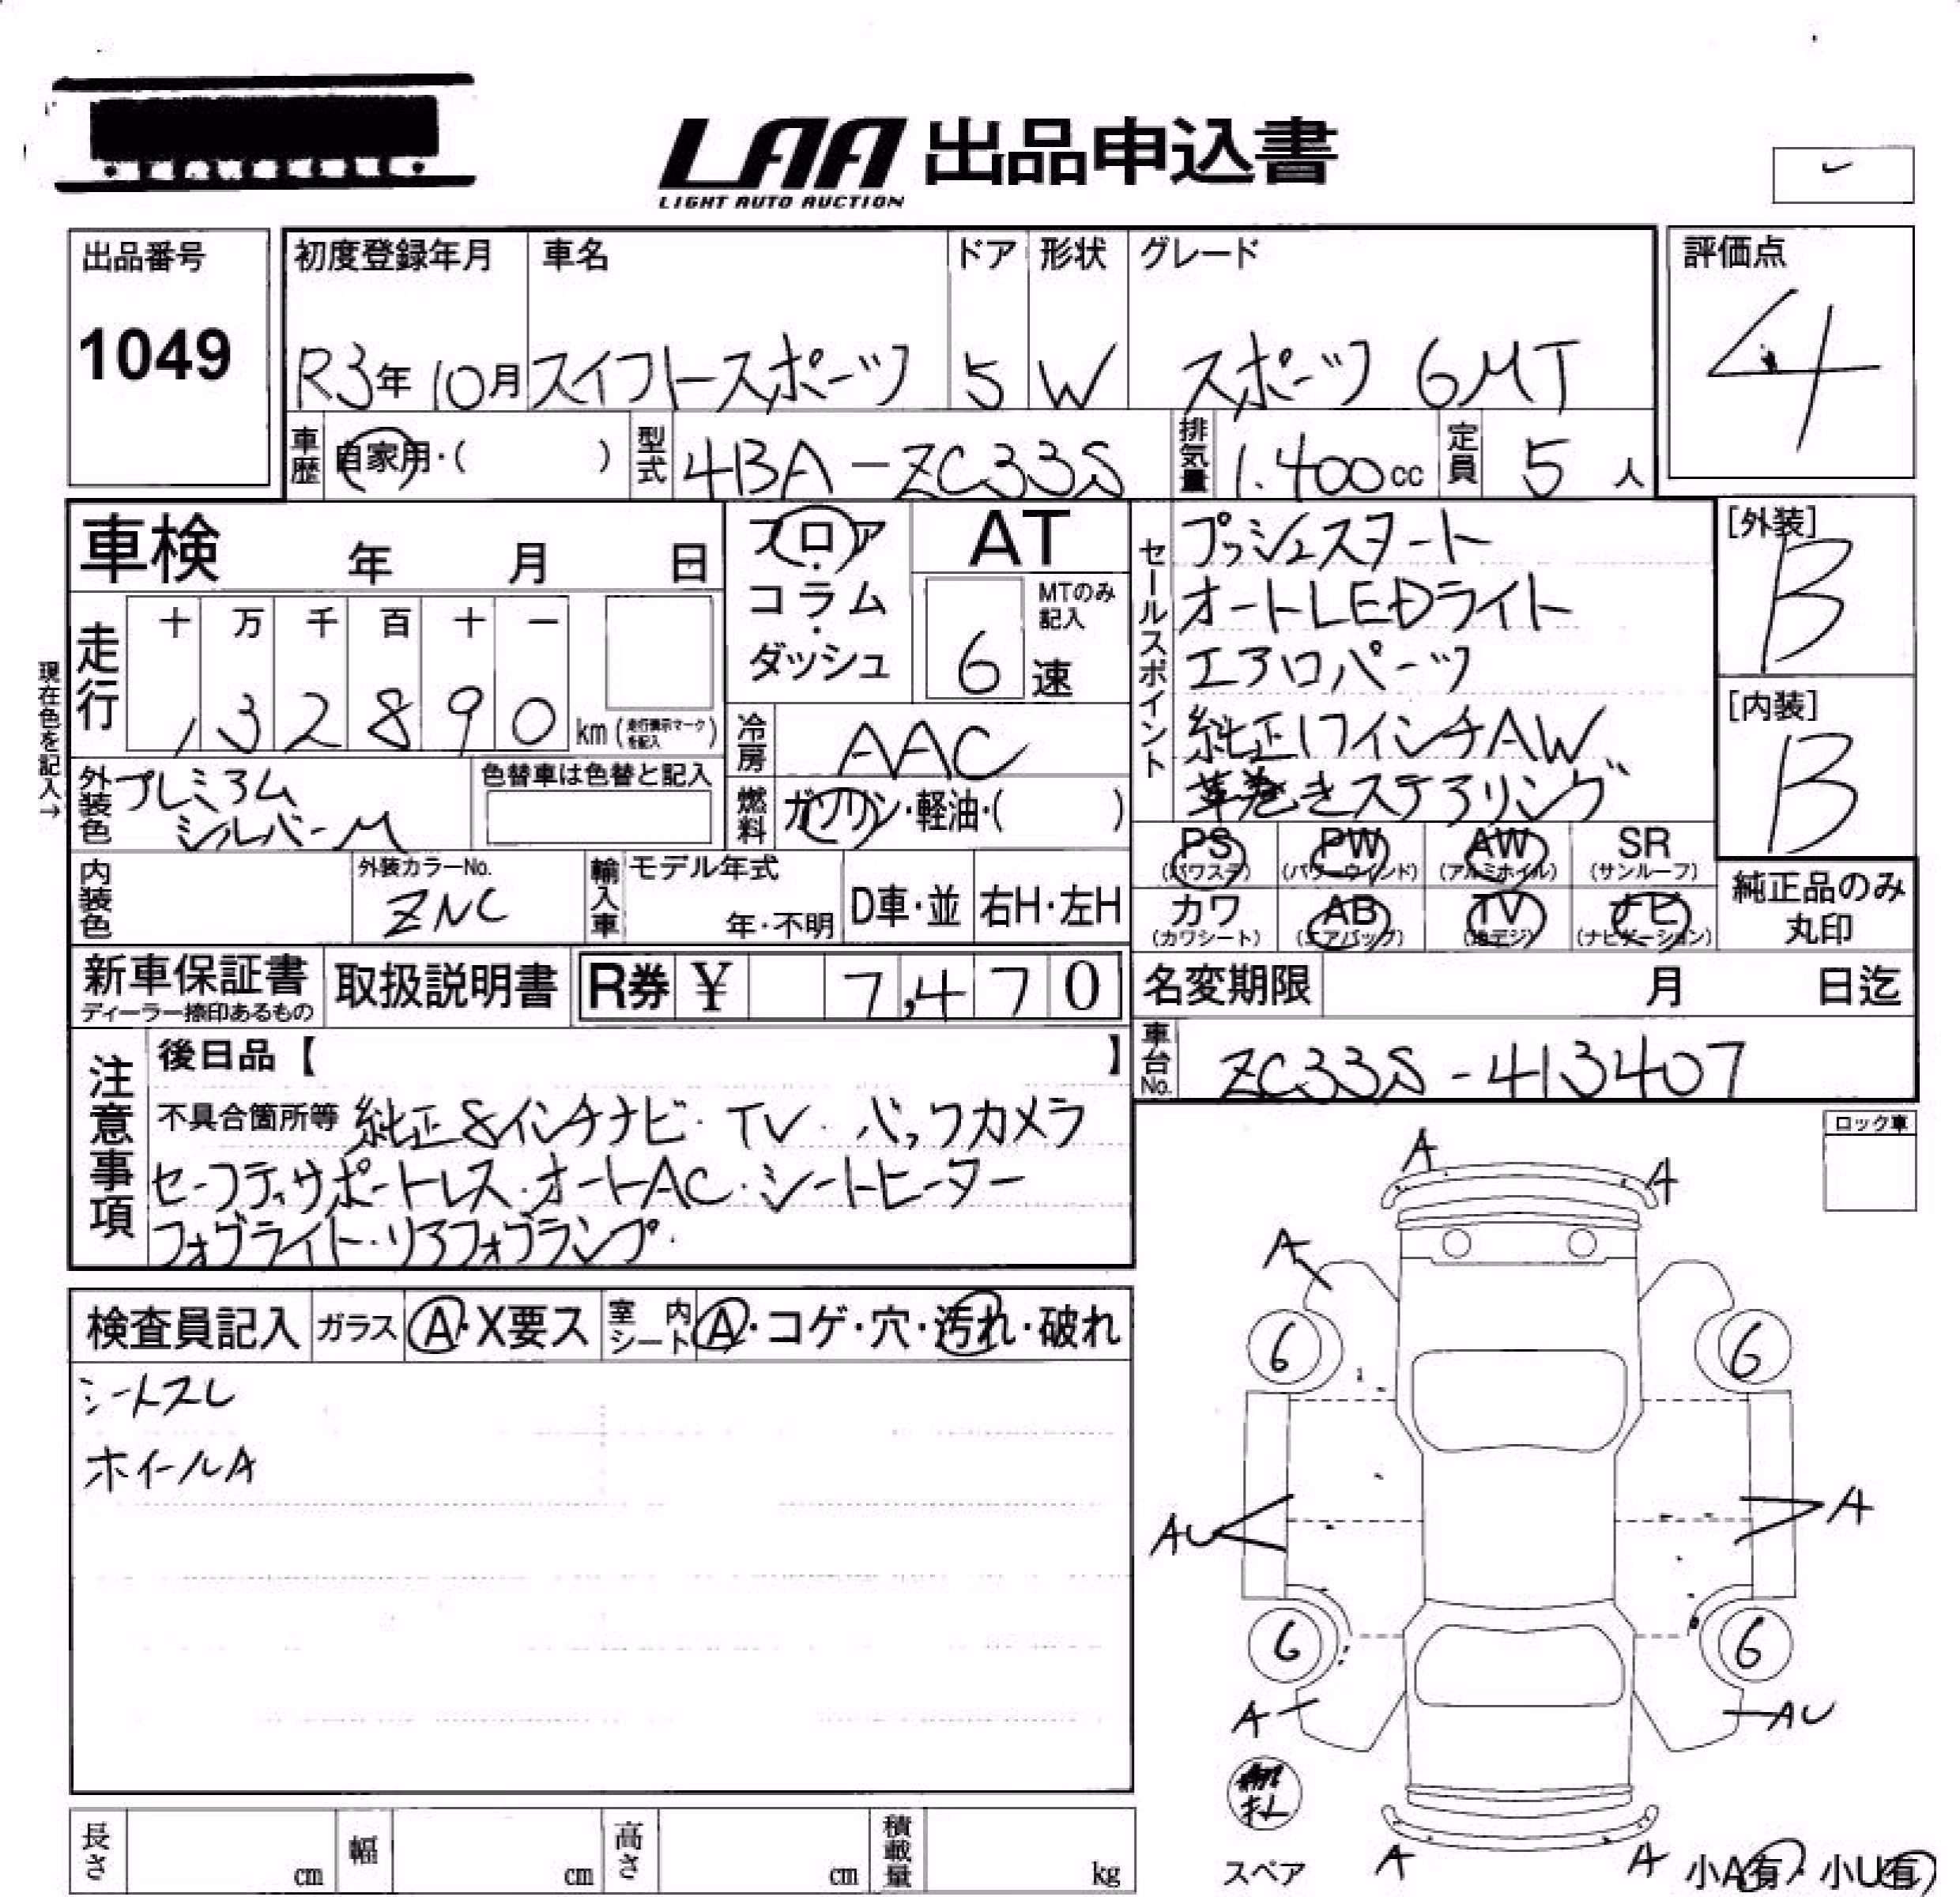 LAA 出品申込書
LIGHT AUTO AUCTION
出品番号
1049
初度登録年月
R3年 10月
車名
スイフトスポーツ
ドア
5
形状
W
グレード
スポーツ 6MT
評価点
4
車歴 自家用・( )
型式 4BA-ZC33S
排気量 1.400cc
定員 5人
車検 年 月 日
走行
十 万 千 百 十 一
, 3 2 8 9 0
km(走行メーター表示マークを記入)
現在色を記入→
外装色 プレミアム
シルバーM
色替車は色替と記入
内装色
外装カラーNo.
ZNC
輸入車
モデル年式
年・不明
D車・並
右H・左H
フロア
・
コラム
・
ダッシュ
AT
MTのみ
記入
6速
冷房 AAC
燃料 ガソリン・軽油・( )
セールスポイント
プッシュスタート
オートLEDライト
エアロパーツ
純正17インチAW
革巻きステアリング
[外装]
B
[内装]
B
PS PW AW SR
(パワステ) (パワーウィンド) (アルミホイル) (サンルーフ)
カワ AB TV ナビ
(カワシート) (エアバッグ) (地デジ) (ナビゲーション)
純正品のみ
丸印
新車保証書
ディーラー捺印あるもの
取扱説明書
R券 ¥ 7,470
名変期限 月 日迄
車台No. ZC33S-413407
注意事項
後日品【 】
不具合箇所等 純正8インチナビ・TV・バックカメラ
セーフティサポートレス・オートAC・シートヒーター
フォグライト・リアフォグランプ・
ロック車
検査員記入
ガラス A・X要ス
室内シート A・コゲ・穴・汚れ・破れ
シートスレ
ホイールA
A
A
A
6
6
AU
A
6
6
A
AU
スペア
A
A
小A有・小U有
長さ cm
幅 cm
高さ cm
積載量 kg